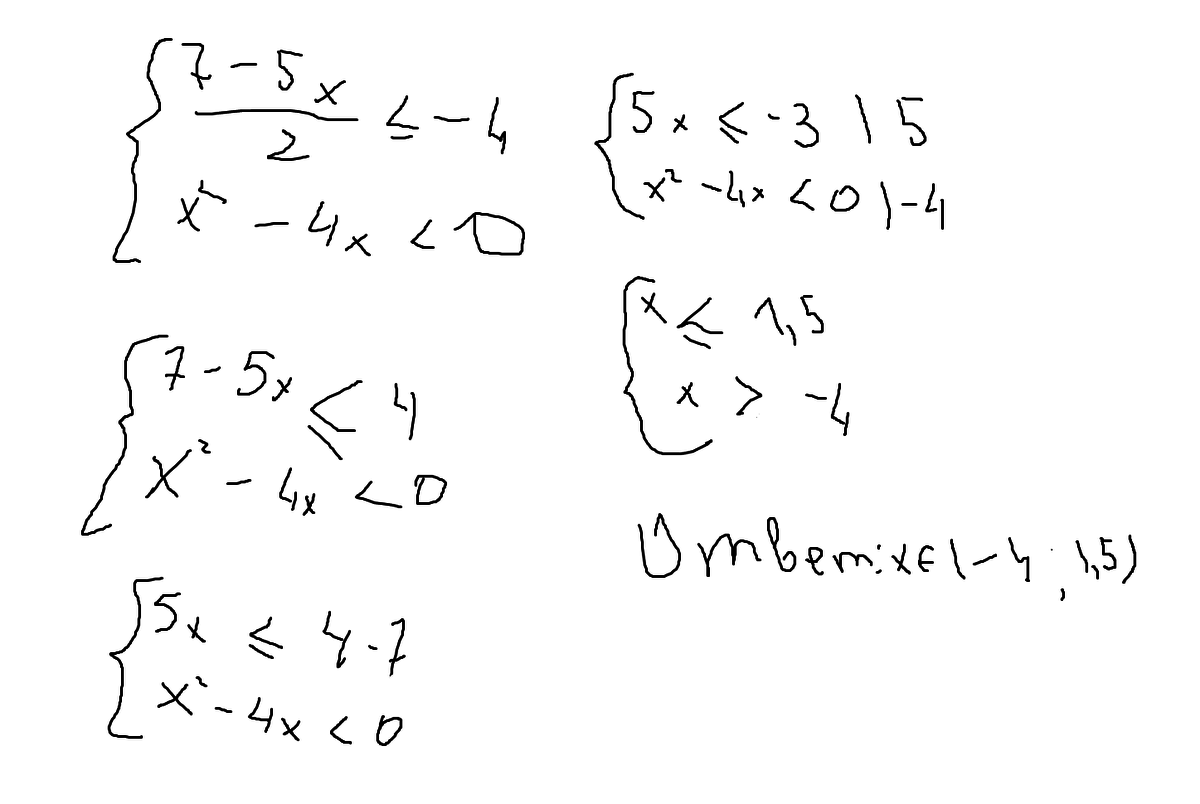 7 - 5x
2
≤ - 4
x² - 4x < 0
7 - 5x ≤ 4
x² - 4x < 0
5x ≤ 4 - 7
x² - 4x < 0
5x ≤ -3 | 5
x² - 4x < 0 | -4
x ≤ 1,5
x > -4
Ответ: x ∈ (-4; 1,5)